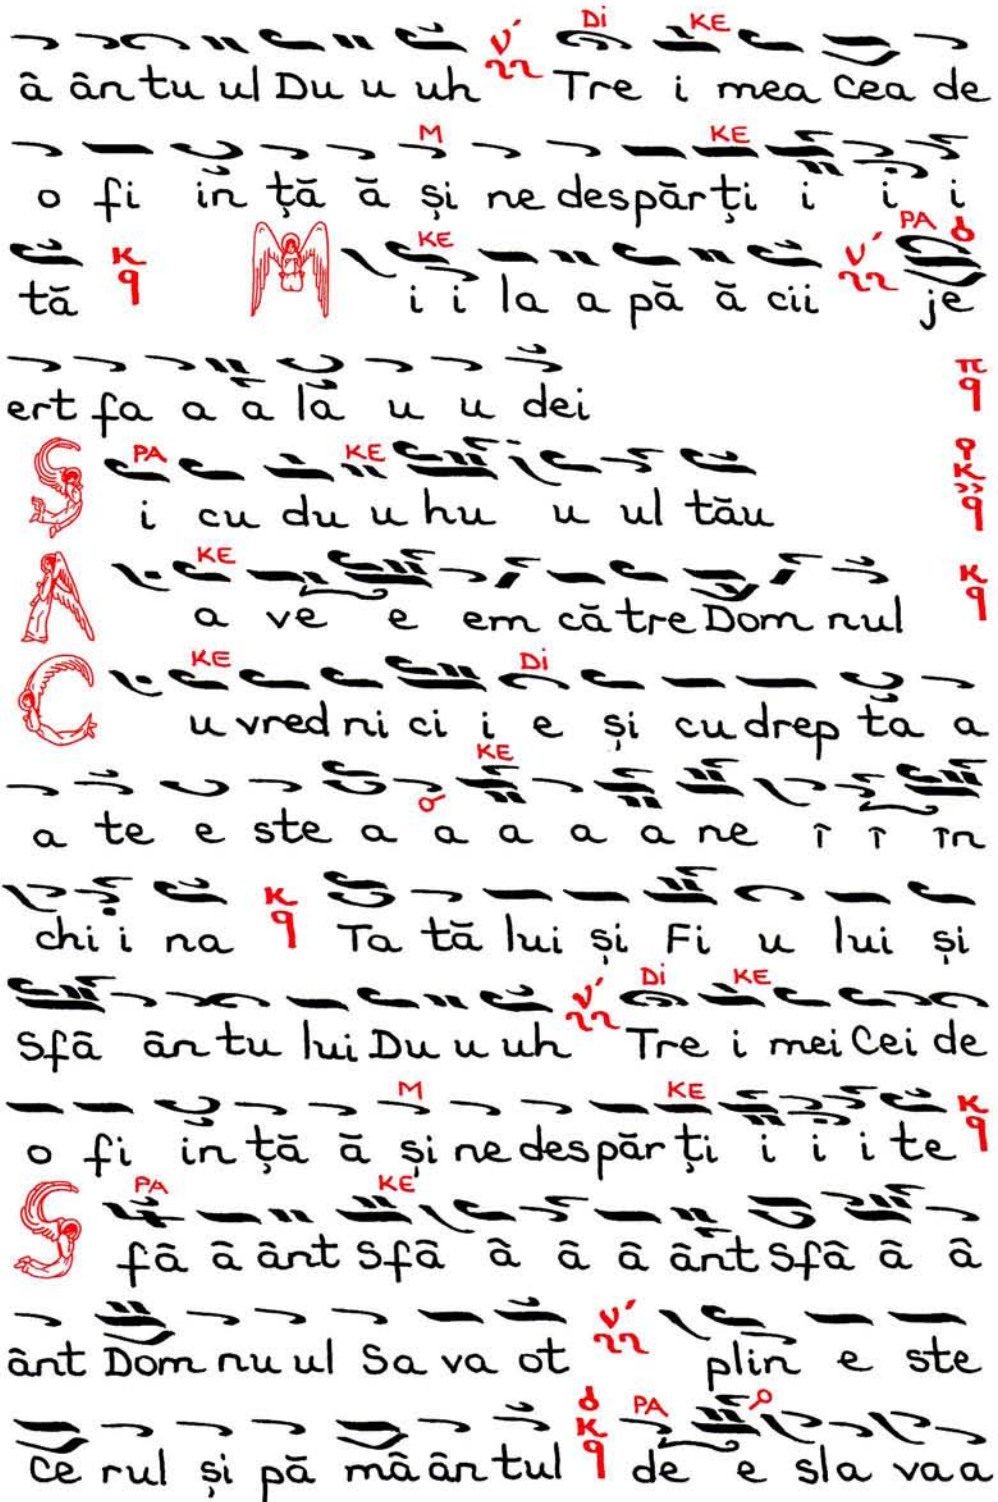 â ântu ul Du u uh Tre i mea cea de
o fi in ță ă și ne despărți i i i
tă M i i la a pă ă cii je
ert fa a a lă u u dei
S i cu du u hu u ul tău
A a ve e em către Domnul
C u vred ni ci i e și cu drep ta a
a te e ste a a a a a ne î î în
chi i na Ta tă lui și Fi u lui și
Sfâ ântu lui Du u uh Tre i mei Cei de
o fi in ță ă și ne despărți i i i te
S fâ â ânt Sfâ â â â ânt Sfâ â â
ânt Dom nu ul Sa va ot plin e ste
Ce rul și pă mâ ân tul de e sla va a